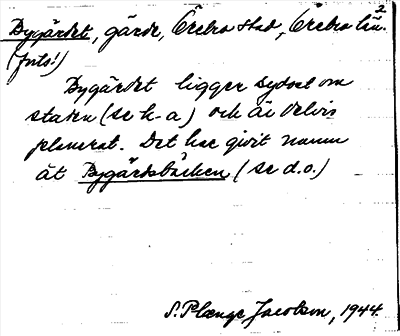 2
Bygärdet, gärde, Örebro stad, Örebro län.
(forts!)
Bygärdet ligger sydost om
staden (se h-a) och är delvis
planerat. Det har givit namn
åt Bygärdsbäcken (se d.o.)
S. Plænge Jacobson, 1944.